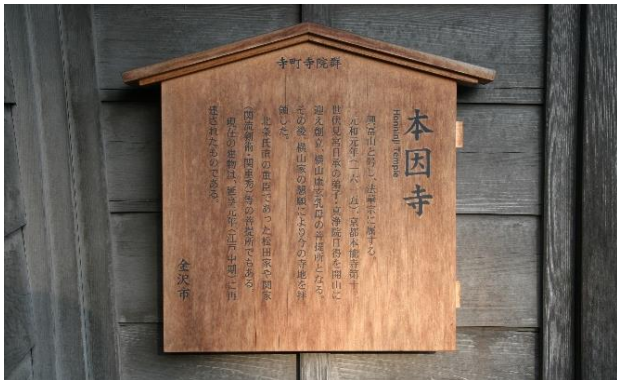 寺町寺院群
本因寺
Honinji Temple
と号し、法華宗に属する。
元和元年(一六一五)、京都本能寺第十
世伏見宮日承の弟子・京浄院を開山に
迎え創立。横山康玄乳母の菩提所となる。
その後、横山家の懇願により今の寺地を拝
領した。
の重臣であった松田家や関家
(関流剣術・)等の菩提所でもある。
現在の建物は、延享元年(江戸中期)に再
建されたものである。
金沢市